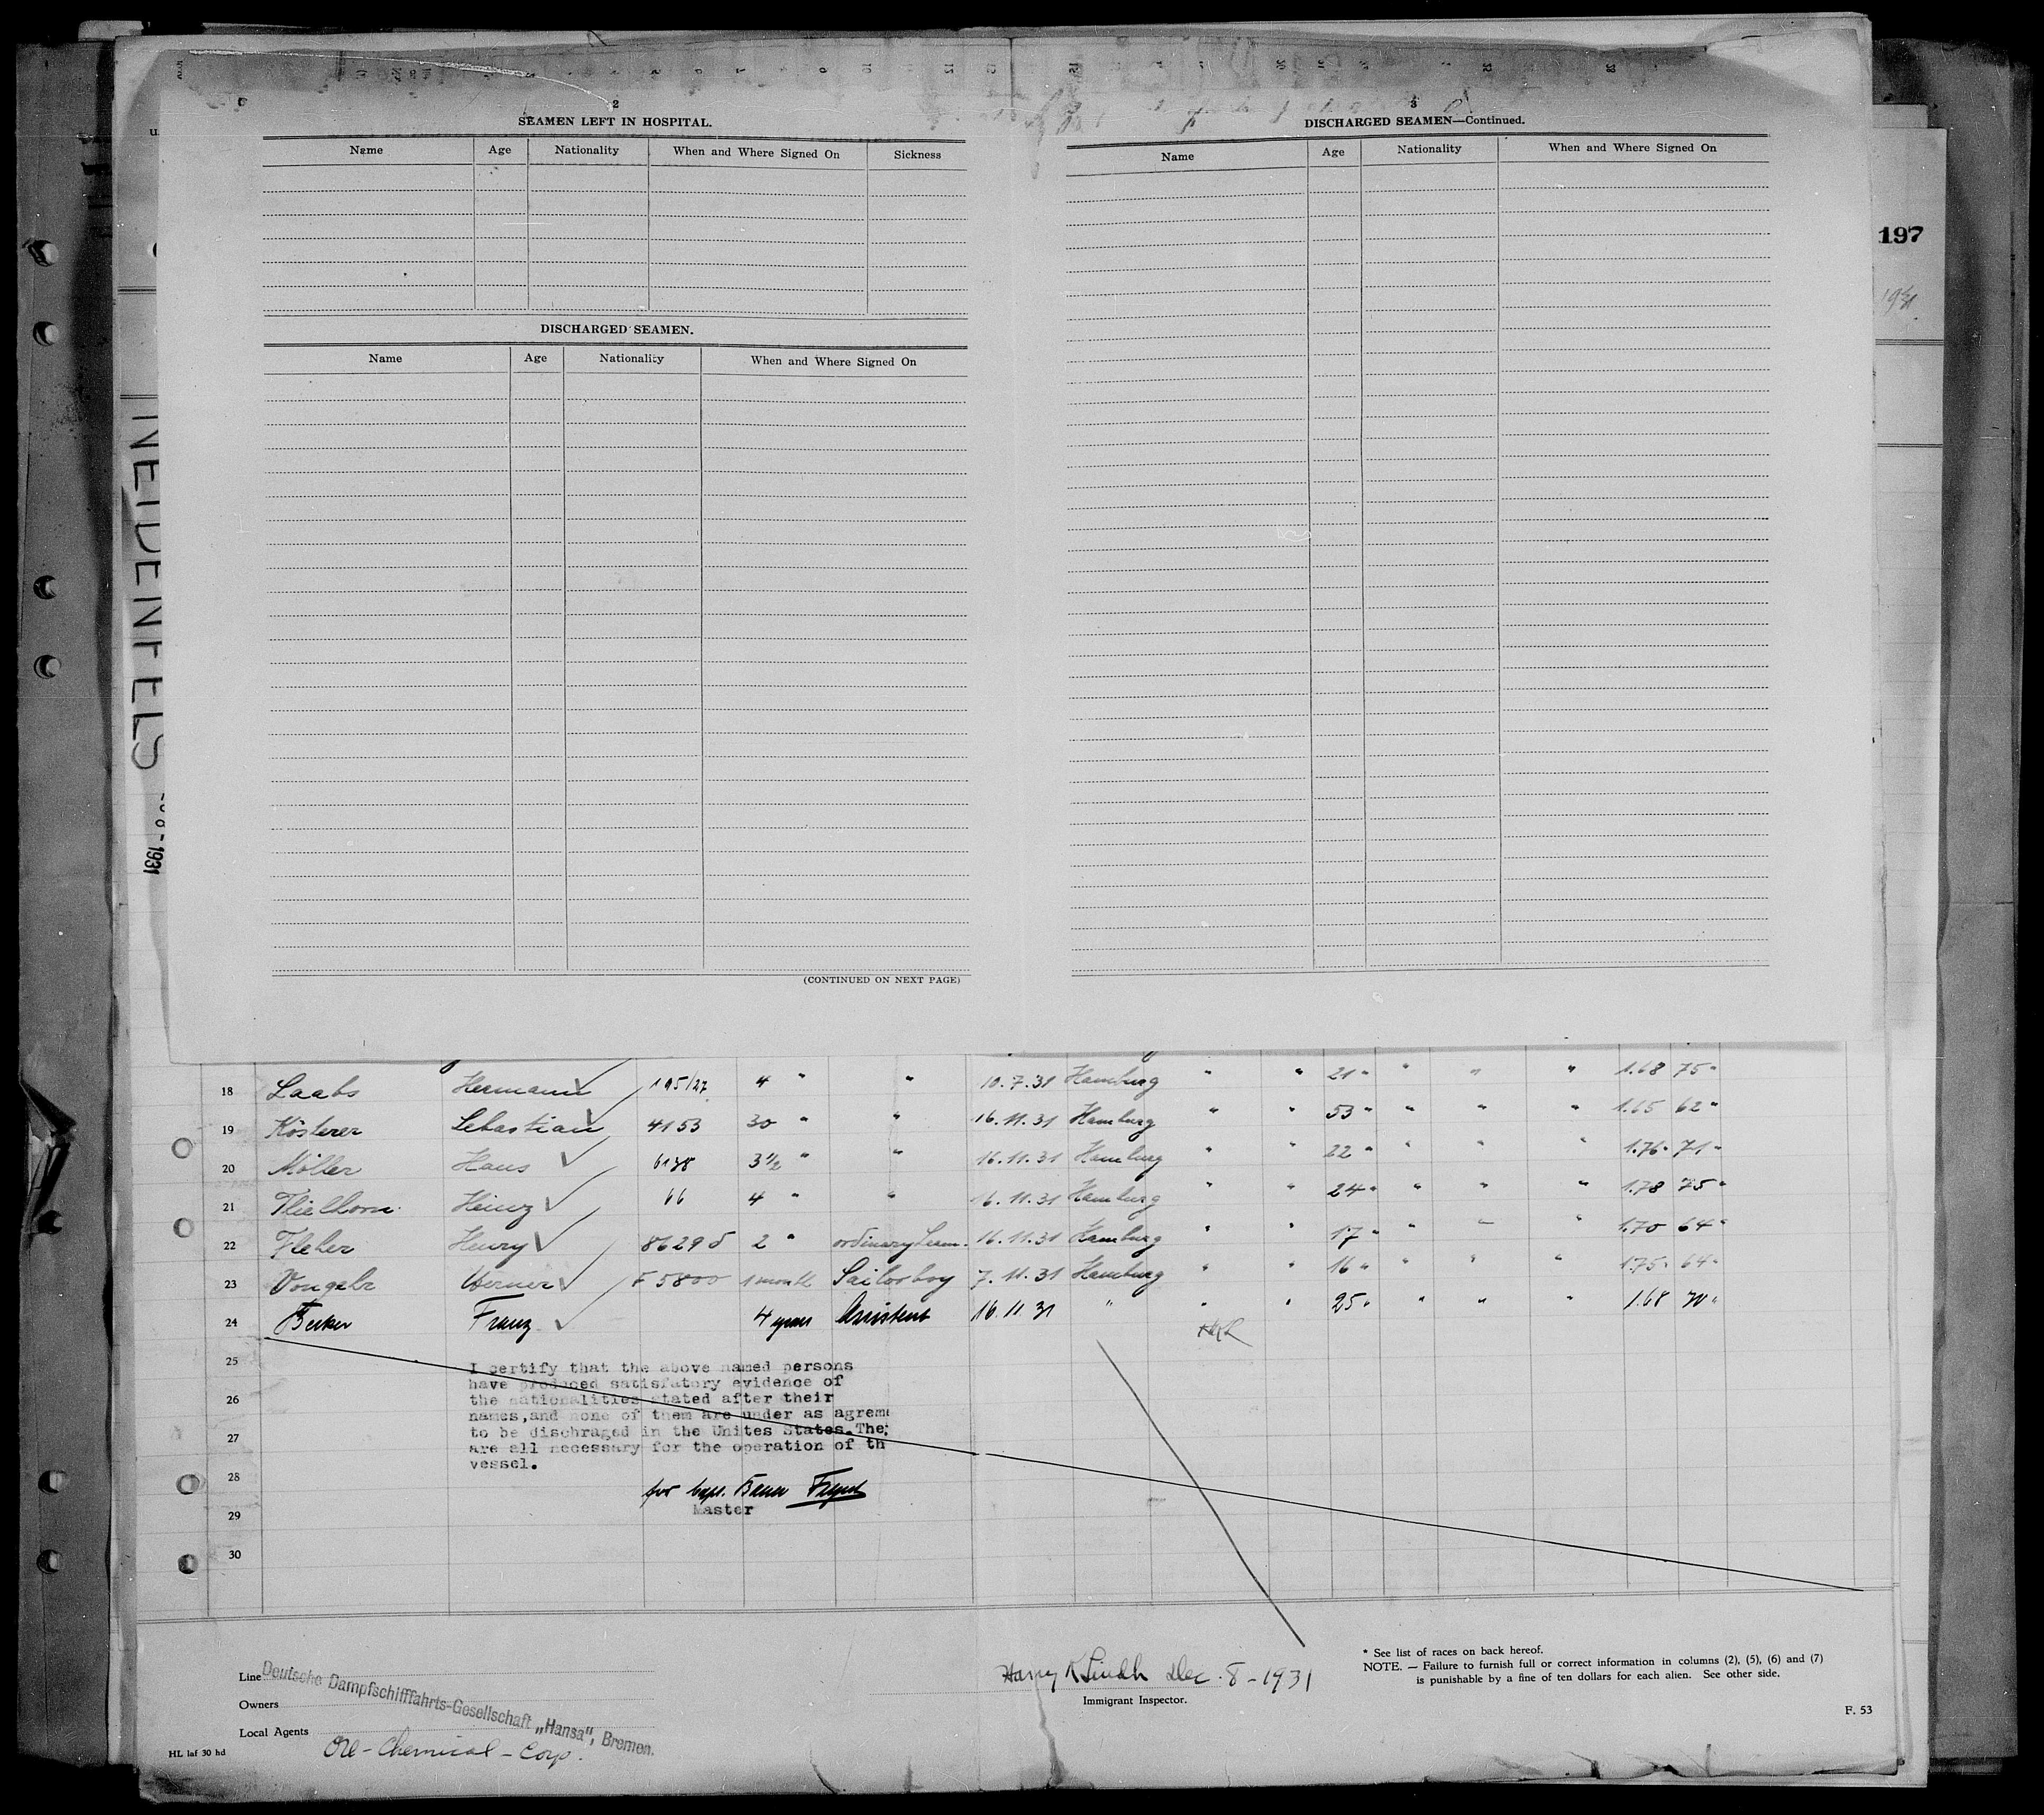 2
SEAMEN LEFT IN HOSPITAL.
Name Age Nationality When and Where Signed On Sickness
DISCHARGED SEAMEN.
Name Age Nationality When and Where Signed On
(CONTINUED ON NEXT PAGE)
3
DISCHARGED SEAMEN—Continued.
Name Age Nationality When and Where Signed On
197
1931
NEIDENFELS
-1931
18 Laabs Hermann 195/27 4 " " 10.7.31 Hamburg " " 21 " " " " 1.68 75 "
19 Kösterer Sebastian 4153 30 " " 16.11.31 Hamburg " " 53 " " " " 1.65 62 "
20 Möller Hans 6138 3½ " " 16.11.31 Hamburg " " 22 " " " " 1.76 " 71 "
21 Thielhorn Heinz 66 4 " " 16.11.31 Hamburg " " 24 " " " " 1.78 75 "
22 Fleher Henry 86290 2 " ordinary Seam. 16.11.31 Hamburg " " 17 " " " " 1.70 64 "
23 Vongehr Werner F 5800 1 month Sailorboy 7.11.31 Hamburg " " 16 " " " " 1.75 " 64 "
24 Becker Franz 4 years Assistent 16.11.31 " " " 25 " " " " 1.68 70 "
25
26
27
28
29
30
I certify that the above named persons
have produced satisfatory evidence of
the nationalities stated after their
names,and none of them are under as agreme
to be dischraged in the Unites States.The
are all necessary for the operation of th
vessel.
for Capt. Bauer
Master
Line Deutsche Dampfschifffahrts-Gesellschaft „Hansa", Bremen.
Owners
Local Agents Ore-Chemical-Corp.
HL laf 30 hd
Harry K Lindh Dec. 8-1931
Immigrant Inspector.
* See list of races on back hereof.
NOTE. — Failure to furnish full or correct information in columns (2), (5), (6) and (7)
is punishable by a fine of ten dollars for each alien. See other side.
F. 53